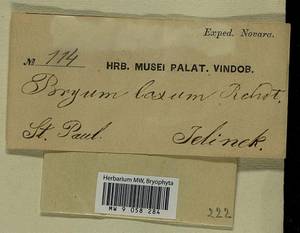 Exped. Novara.
№ 114 HRB. MUSEI PALAT. VINDOB.
Bryum laxum
St. Paul. Jelinek.
Herbarium MW, Bryophyta
MW 9 058 284
222